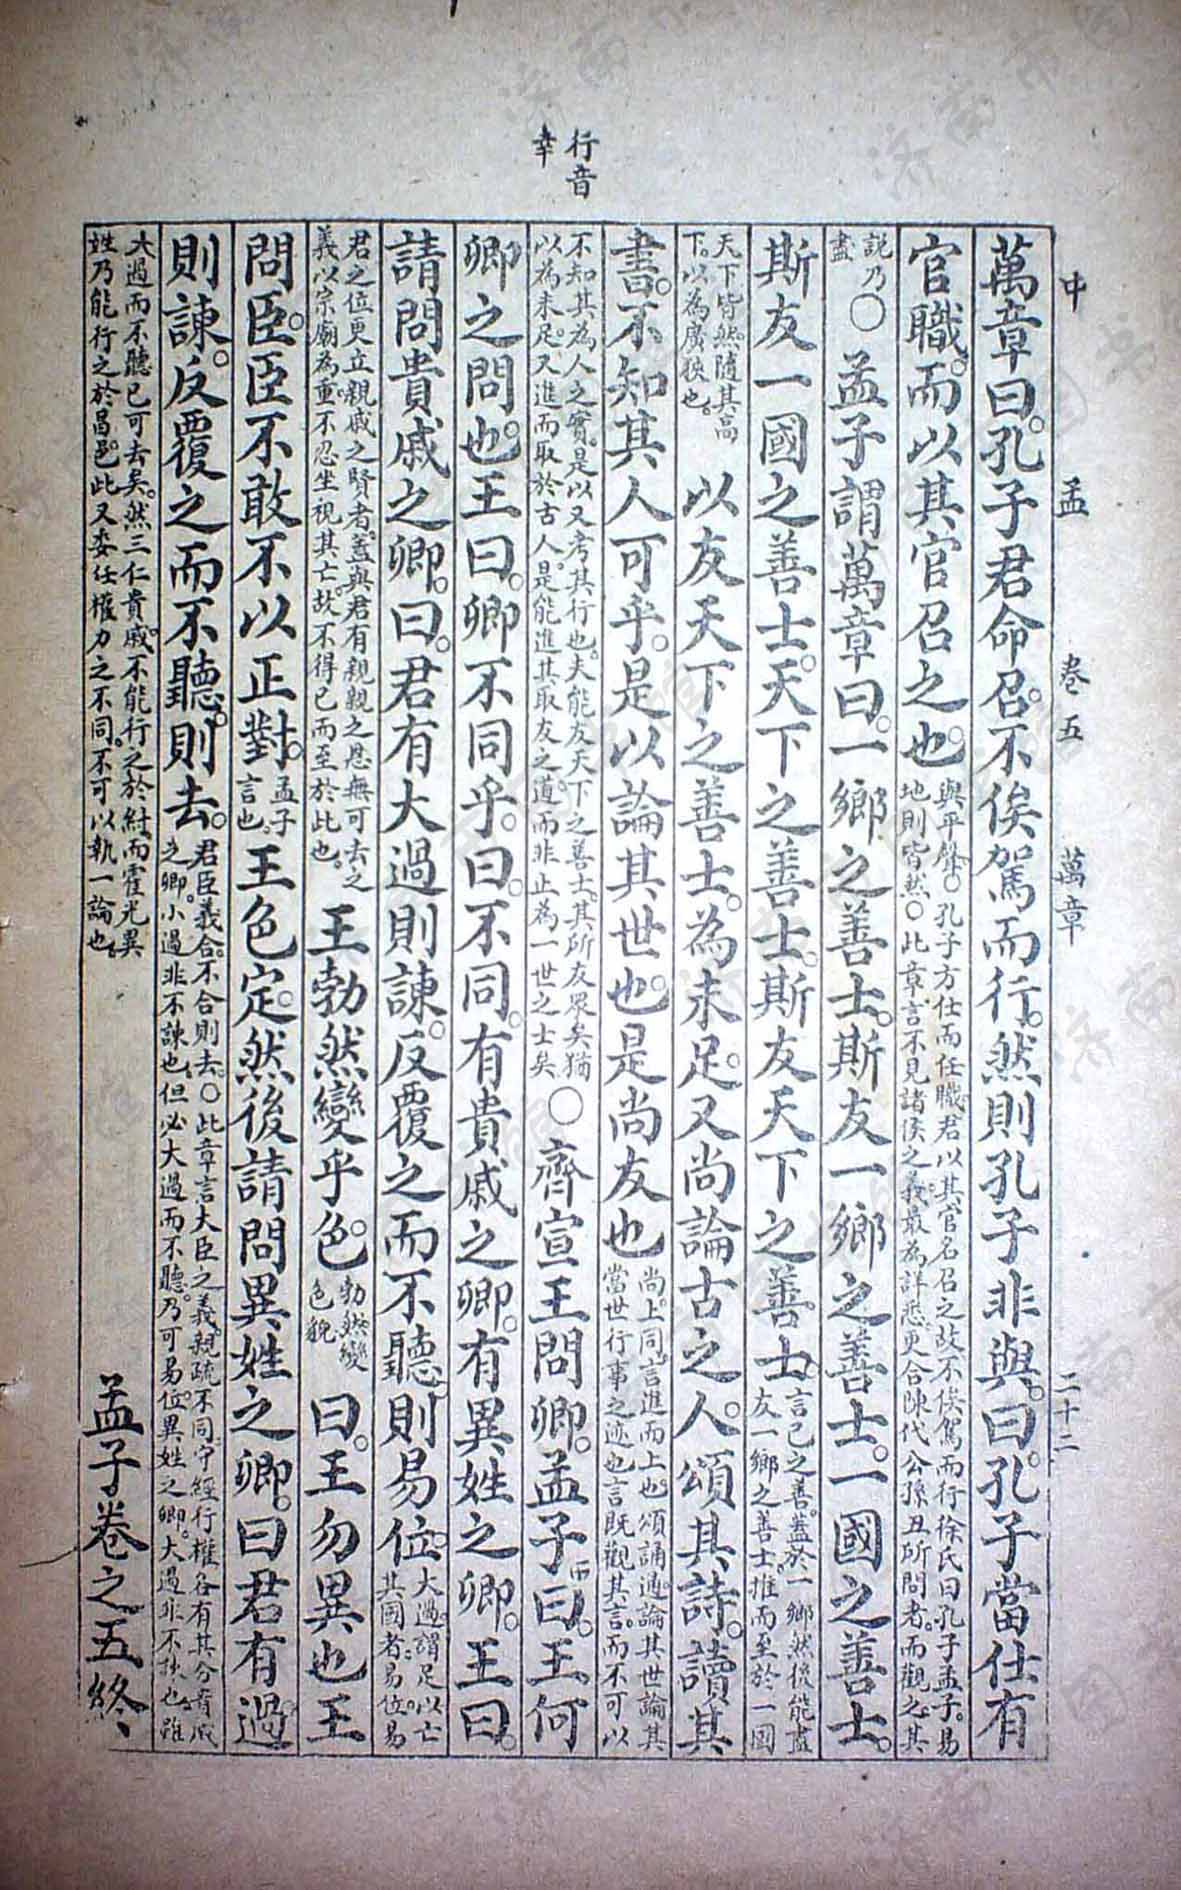 行音
幸
中 孟 卷五 萬章 二十二
萬章曰。孔子君命召。不俟駕而行。然則孔子非與。曰。孔子當仕有
官職。而以其官召之也。
與平聲。○孔子方仕而任職。君以其官名召之。故不俟駕而行。徐氏曰。孔子孟子。易
地則皆然。○此章言不見諸侯之義。最為詳悉。更合陳代公孫丑所問者。而觀之。其
說乃
盡
○孟子謂萬章曰。一鄉之善士。斯友一鄉之善士。一國之善士。
斯友一國之善士。天下之善士。斯友天下之善士。
言己之善。蓋於一鄉。然後能盡
友一鄉之善士。推而至於一國
天下皆然。隨其高
下。以為廣狹也。
以友天下之善士。為未足。又尚論古之人。頌其詩。讀其
書。不知其人可乎。是以論其世也。是尚友也
尚上同。言進而上也。頌誦通。論其世論其
當世行事之迹也。言既觀其言。而不可以
不知其為人之實。是以又考其行也。夫能友天下之善士。其所友眾矣。猶
以為未足。又進而取於古人。是能進其取友之道。而非止為一世之士矣
○齊宣王問卿。孟子曰。王何
卿之問也。王曰。卿不同乎。曰。不同。有貴戚之卿。有異姓之卿。王曰。
請問貴戚之卿。曰。君有大過則諫。反覆之而不聽。則易位。
大過。謂足以亡
其國者。易位。易
君之位。更立親戚之賢者。蓋與君有親親之恩。無可去之
義。以宗廟為重。不忍坐視其亡。故不得已而至於此也。
王勃然變乎色。
勃然變
色貌
曰。王勿異也。王
問臣。臣不敢不以正對。
孟子
言也。
王色定。然後請問異姓之卿。曰君有過
則諫。反覆之而不聽。則去。
君臣義合。不合則去。○此章言大臣之義。親疏不同。守經行權。各有其分。貴戚
之卿。小過非不諫也。但必大過而不聽。乃可易位。異姓之卿。大過非不諫也。雖
大過而不聽。已可去矣。然三仁貴戚。不能行之於紂。而霍光異
姓。乃能行之於昌邑。此又委任權力之不同。不可以執一論也。
孟子卷之五終